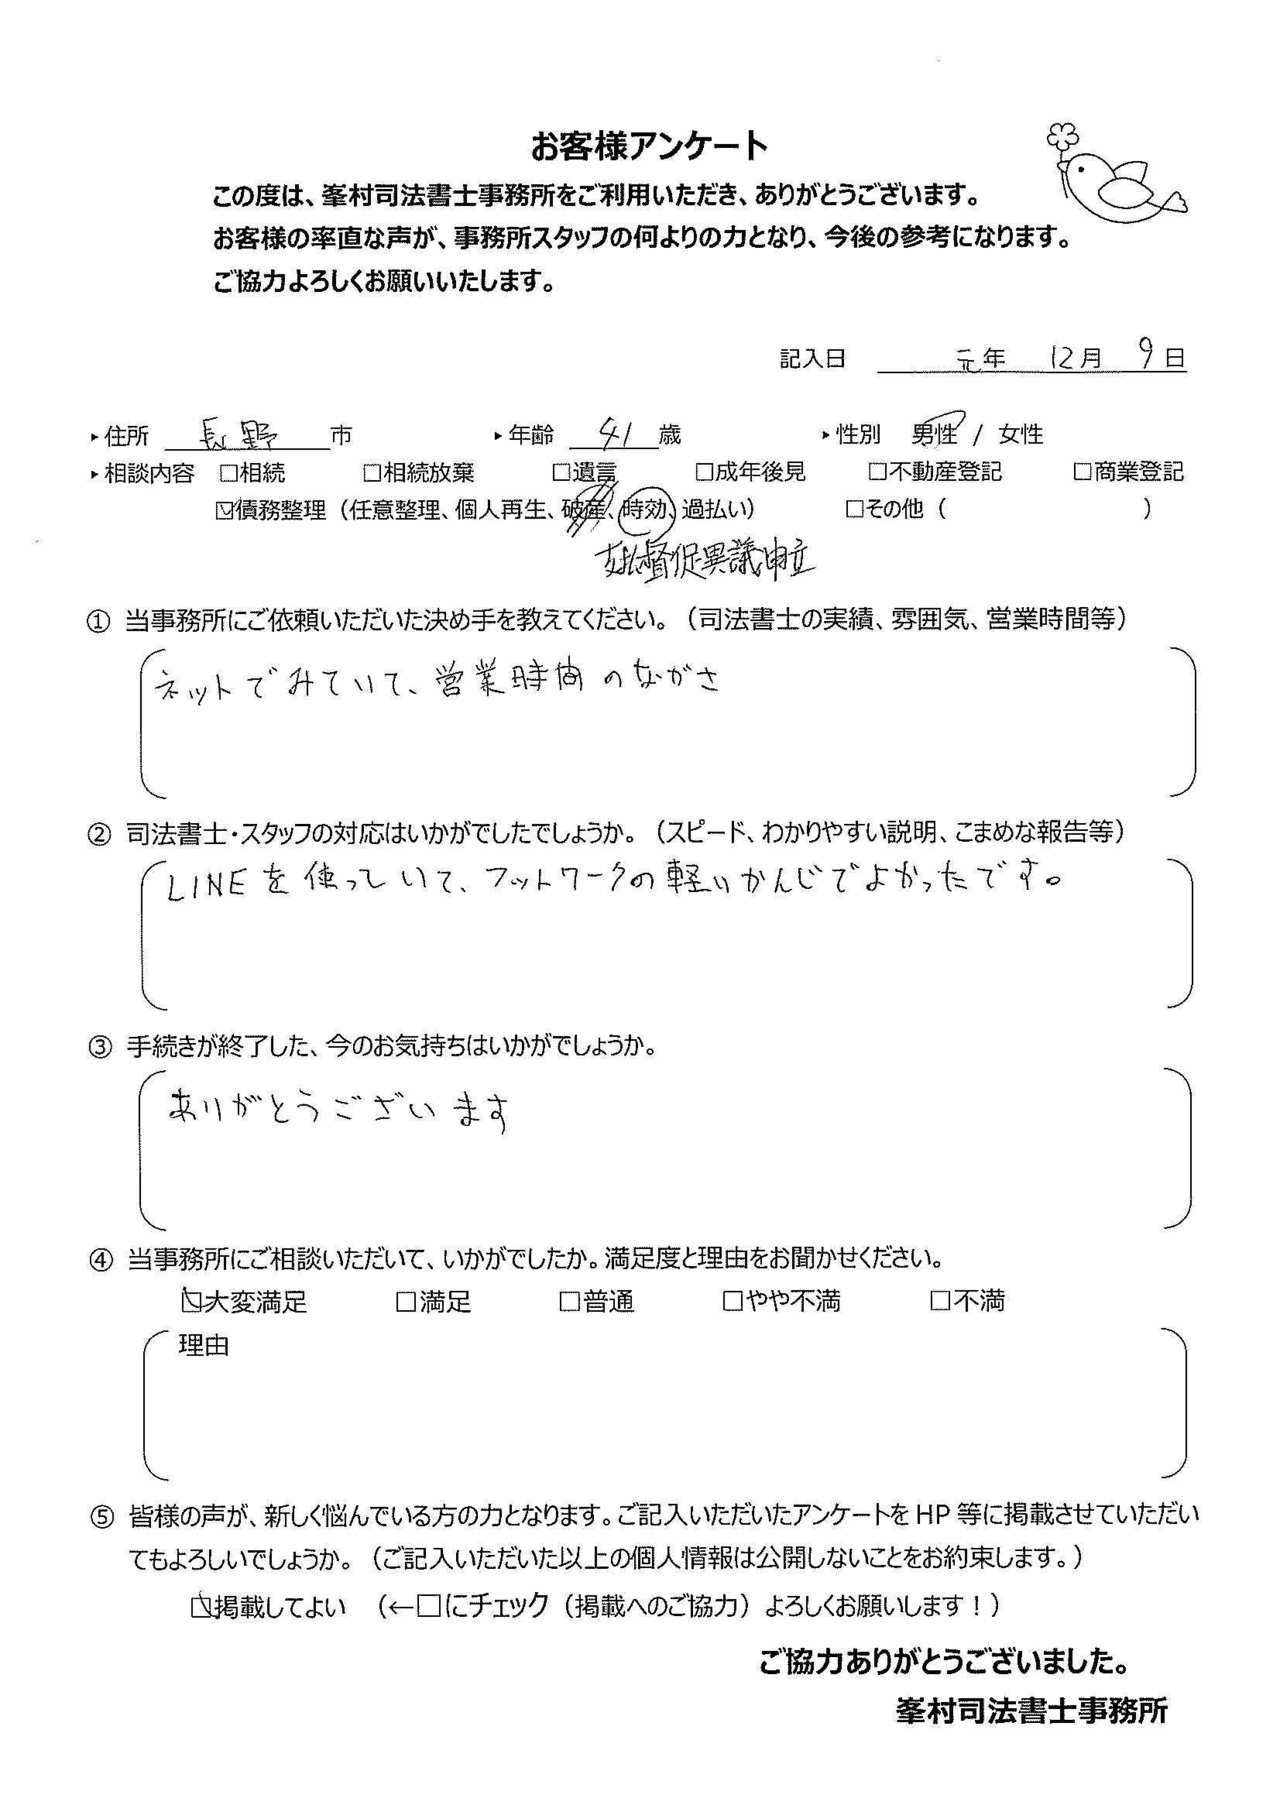 お客様アンケート
この度は、峯村司法書士事務所をご利用いただき、ありがとうございます。
お客様の率直な声が、事務所スタッフの何よりの力となり、今後の参考になります。
ご協力よろしくお願いいたします。
記入日 元年 12月 9日
▸住所 長野 市 ▸年齢 41 歳 ▸性別 男性 / 女性
▸相談内容 □相続 □相続放棄 □遺言 □成年後見 □不動産登記 □商業登記
☑債務整理（任意整理、個人再生、破産、時効、過払い） □その他（ ）
支払督促異議申立
① 当事務所にご依頼いただいた決め手を教えてください。（司法書士の実績、雰囲気、営業時間等）
ネットでみていて、営業時間のながさ
② 司法書士・スタッフの対応はいかがでしたでしょうか。（スピード、わかりやすい説明、こまめな報告等）
LINEを使っていて、フットワークの軽いかんじでよかったです。
③ 手続きが終了した、今のお気持ちはいかがでしょうか。
ありがとうございます
④ 当事務所にご相談いただいて、いかがでしたか。満足度と理由をお聞かせください。
☑大変満足 □満足 □普通 □やや不満 □不満
理由
⑤ 皆様の声が、新しく悩んでいる方の力となります。ご記入いただいたアンケートを HP 等に掲載させていただい
てもよろしいでしょうか。（ご記入いただいた以上の個人情報は公開しないことをお約束します。）
☑掲載してよい （←□にチェック（掲載へのご協力）よろしくお願いします！）
ご協力ありがとうございました。
峯村司法書士事務所